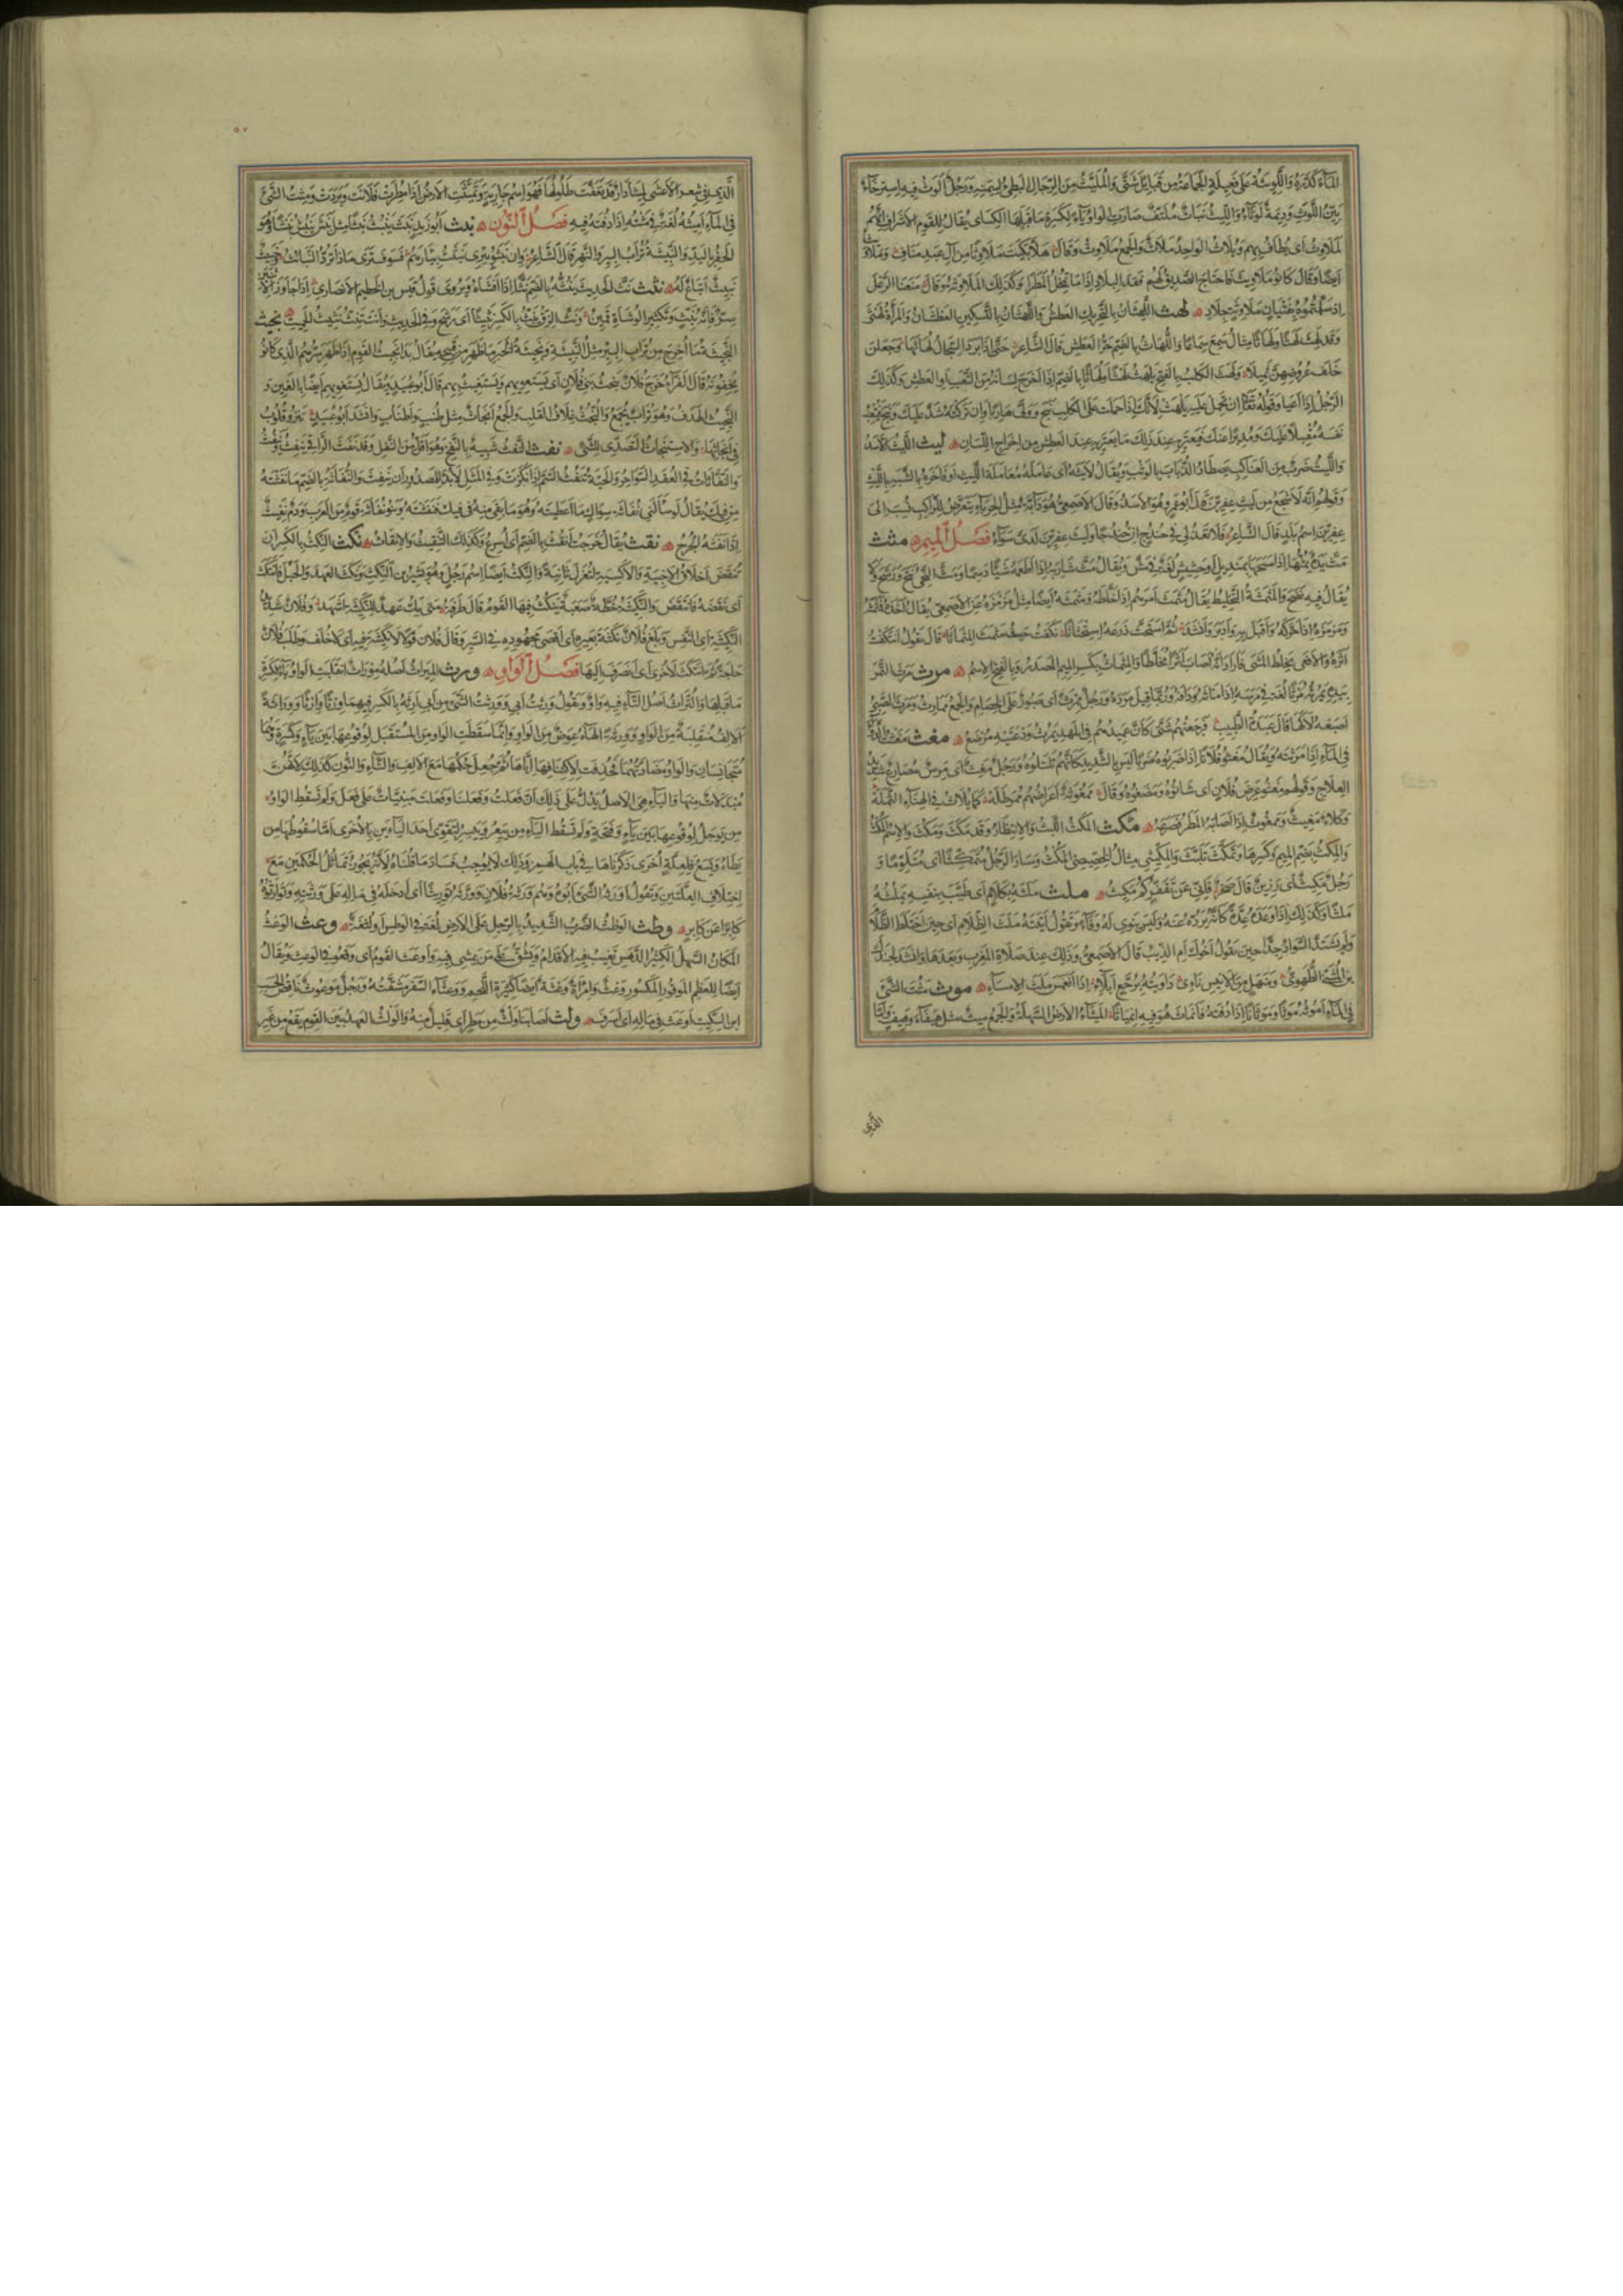 الماء كدّره واللويثة على فعيلة الجماعة من قبائل شتى والمليث من الرجال البطئ لسمنه ورجل الوث فيه استرخاء
بين اللوث وديمة لوثاء والليث نبات ملتف صارت الواو ياء لكسرة ما قبلها الكسائي يقال للقوم الاشراف انهم
لملاوث اى يطاف بهم ويلاث الواحد ملاث والجمع ملاوث وقال هلا بكيت ملاوثا من آل عبد مناف وملاويث
ايضا وقال كانوا ملاويث فاحتاج الصديق لهم فقد البلاد اذا ما تمحل المطرا وكذلك الملاوثة وقال منعنا الرعل
اذ سلمتموه بفتيان ملاوثة جلاد لهث اللهثان بالتحريك العطش واللهثان بالتسكين العطشان والمرأة لهثى
وقد لهث لهثا ولهاثا مثال سمع سماعا واللهاث بالضم حر العطش قال الشاعر حتى اذا برد السجال لهاثها وجعلن
خلف غروضهن ثميلا ولهث الكلب بالفتح يلهث لهثا ولهاثا بالضم اذا اخرج لسانه من التعب او العطش وكذلك
الرجل اذا اعيا وقوله تعالى ان تحمل عليه يلهث لانك اذا حملت على الكلب نبح وولى هاربا وان تركته شد عليك ونبح فيتعب
نفسه مقبلا عليك ومدبرا عنك فيعتريه عند ذلك ما يعتريه عند العطش من اخراج اللسان ليث الليث الاسد
والليث ضرب من العناكب يصطاد الذباب بالوثب ويقال لايثه اى عامله معاملة الليث او فاخره بالشبه بالليث
وقولهم انه لاشجع من ليث عفرين قال ابو عمرو هو الاسد وقال الاصمعي هو دابة مثل الحرباء يتعرض للراكب نسب الى
عفرين اسم بلد قال الشاعر فلا تعذلى فى حندج ان حندجا وليث عفرين لدى سواء فصل الميم مثث
مث يده يمثها اذا مسحها بمنديل او حشيش لغة فى مش ويقال مث شاربه اذا اطعمه شيئا دسما ومث النحى نتح ورشح ولا
يقال فيه نضح والمثمثة التخليط يقال مثمث امرهم اذا خلطه ومثمثه ايضا مثل مزمزه عن الاصمعي يقال اخذه فمثمثه
ومزمزه اذا حركه واقبل به وادبر وانشد ثم استحث ذرعه استحثاثا نكفت حيث مثمث المثماثا قال يقول انتكفت
اثره والافعى يخلط المشى فاراد انه اصاب اثرا مخلطا والمثماث بكسر الميم المصدر وبالفتح الاسم مرث مرث التمر
بيده يمرثه مرثا لغة فى مرسه اذا ماثه ودافه وربما قيل مرده ورجل ممرث اى صبور على الخصام والجمع ممارث ومرث الصبى
اصبعه لاكها قال عبدة الطبيب فرجعتهم شتى كان عميدهم فى المهد يمرث ودعتيه مرضع مغث مغثت الدواء
فى الماء اذا مرثته ويقال مغثوا فلانا اذا ضربوه ضربا ليس بالشديد كانهم تلتلوه ورجل مغث اى مرس مصارع شديد
العلاج وقولهم مغثوا عرض فلان اى شانوه ومضغوه وقال ممغوثة اعراضهم ممرطله كما يلاث فى الهناء الثمله
وكلاء مغيث وممغوث اذا اصابه المطر فصرعه مكث المكث اللبث والانتظار وقد مكث ومكث والاسم المكث
والمكث بضم الميم وكسرها وتمكث تلبث والمكيثى مثال الخصيصى المكث وسار الرجل متمكثا اى متلوما و
رجل مكيث اى رزين قال صخر فانى عن تقفركم مكيث ملث ملثه بكلام اى طيب بنفسه يملثه
ملثا وكذلك اذا وعده عدة كانه يرده عنه وليس ينوى له وفاء وتقول اتيته ملث الظلام اى حين اختلط الظلام
ولم يشتد السواد جدا حين تقول اخوك ام الذيب قال الاصمعي وذلك عند صلاة المغرب وبعدها وانشد لجندل
بن المثنى الطهوى ومنهل من الانيس ناء داويته برجع ابلاء اذا انغمس ملث الامساء موث مثت الشئ
فى الماء اموثه موثا وموثانا اذا دفته فانماث هو فيه انمياثا الميثاء الارض السهلة والجمع ميث مثل هيفاء وهيف واما
الذى
الذى فى شعر الاعشى لميثاء دار قد تعفت طلولها فهو اسم جارية وتميثت الارض اذا مطرت فلانت وبردت ومثت الشئ
فى الماء اميثه لغة فى مثته اذا دفته فيه فصل النون نبث ابو زيد نبث ينبث نبثا مثل نبش ينبش نبشا وهو
الحفر باليد والنبيثة تراب البير والنهر قال الشاعر وان نبثوا بيرى نبثت بيارهم فسوف ترى ماذا ترد النبائث خبيث
نبيث اتباع له نثث نث الحديث ينثه بالضم نثا اذا افشاه ويروى قول قيس بن الخطيم الانصارى اذا جاوز الاثنين
سر فانه بنث وتكثير الوشاة قمين ونث الزق ينث بالكسر نثيثا اى رشح وفى الحديث وانت تنث نثيث الحميت نجث
النجيثة ما اخرج من تراب البير مثل النبيثة ونجيثة الخبر ما ظهر من قبيحه ويقال بدا نجيث القوم اذا ظهر سرهم الذى كانوا
يخفونه قال الفراء خرج فلان ينجث بنى فلان اى يستعويهم ويستغيث بهم قال ابو عبيد ويقال يستغويهم ايضا بالغين و
النجيث الهدف وهو تراب يجمع والنجث غلاف القلب والجمع انجاث مثل طنب واطناب وانشد ابو عبيد تنزو قلوب
فى انجاثها والاستنجاث التصدى للشئ نفث النفث شبيه بالنفخ وهو اقل من التفل وقد نفث الراقى ينفث وينفث
والنفاثات فى العقد السواحر والحية تنفث السم اذا نكزت وفى المثل لابد للمصدور ان ينفث والنفاثة بالضم ما نفثته
من فيك يقال لو سالنى نفاثة سواك ما اعطيته وهو ما بقى منه فى فيك فنفثته وبنو نفاثة قوم من العرب ودم نفيث
اذا نفثه الجرح نقث يقال خرجت انقث بالضم اى اسرع وكذلك التنقيث والانقاث نكث النكث بالكسر ان
تنقض اخلاق الاخبية والاكسية لتغزل ثانية والنكث ايضا اسم رجل وهو بشير بن النكث ونكث العهد والحبل فانتكث
اى نقضه فانتقض والنكيثة خطة صعبة ينكث فيها القوم قال طرفة متى يك عهد للنكيثة اشهد وفلان شديد
النكيثة اى النفس وبلغ فلان نكيثة بعيره اى اقصى مجهوده فى السير وقال فلان قولا لا نكيثة فيه اى لا خلف وطلب فلان
حاجة ثم انتكث لاخرى اى انصرف اليها فصل الواو ورث الميراث اصله موراث انقلبت الواو ياء لكسرة
ما قبلها والتراث اصل التاء فيه واو وتقول ورثت ابى وورثت الشئ من ابى ارثه بالكسر فيهما ورثا ووراثة وارثا
الالف منقلبة من الواو ورثة الهاء عوض من الواو وانما سقطت الواو من المستقبل لوقوعها بين ياء وكسرة وهما
متجانسان والواو مضادتهما فحذفت لاكتنافهما اياها ثم جعل حكمها مع الالف والتاء والنون كذلك لانهن
مبدلات منها والياء هى الاصل يدل على ذلك ان فعلت وفعلنا وفعلت مبنيات على فعل ولم تسقط الواو
من يوجل لوقوعها بين ياء وفتحة ولم تسقط الياء من ييعر وييسر لتقوى احد الياءين بالاخرى اما سقوطها من
يطاء ويسع فلعلة اخرى ذكرناها فى باب الهمز وذلك لا يوجب فساد ما قلناه لانه يجوز تماثل الحكمين مع
اختلاف العلتين وتقول اورثه الشئ ابوه وهم ورثة فلان وورثه توريثا اى ادخله فى ماله على ورثته وتوارثوه
كابرا عن كابر وطث الوطث الضرب الشديد بالرجل على الارض لغة فى الوطس او لثغة وعث الوعث
المكان السهل الكثير الدهس تغيب فيه الاقدام ويشق على من يمشى فيه واوعث القوم اى وقعوا فى الوعث ويقال
ايضا للعظم الموقور المكسور وعث وامرأة وعثة ايضا كثيرة اللحم ووعثاء السفر مشقته ورجل موعوث ناقص الحسب
ابن السكيت اوعث فى ماله اى اسرف ولث اصابنا ولث من مطر اى قليل منه والولث العهد بين القوم يقع من غير